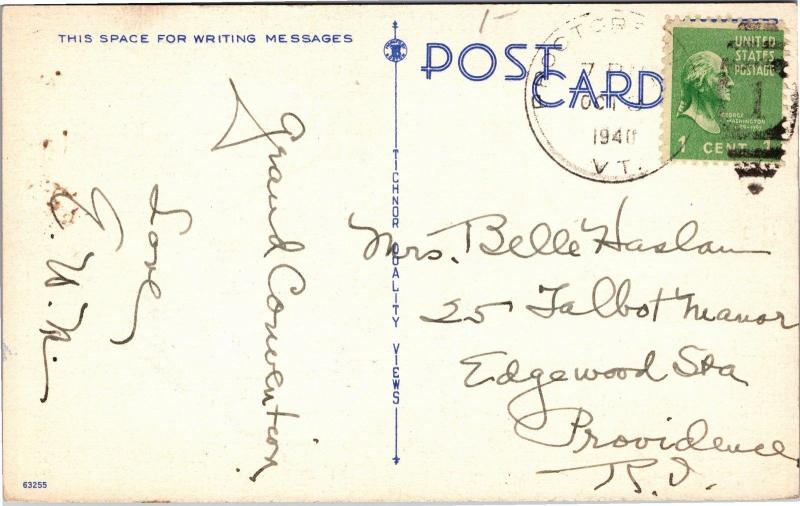 THIS SPACE FOR WRITING MESSAGES
Grand Convention
Love
POST
CARD
7 PM
OCT
1940
VT.
UNITED
STATES
POSTAGE
1
GEORGE
WASHINGTON
1 CENT 1
TICHNOR QUALITY VIEWS
Mrs. Belle Haslam
25 Talbot Manor
Edgewood Sta
Providence
R.I.
63255